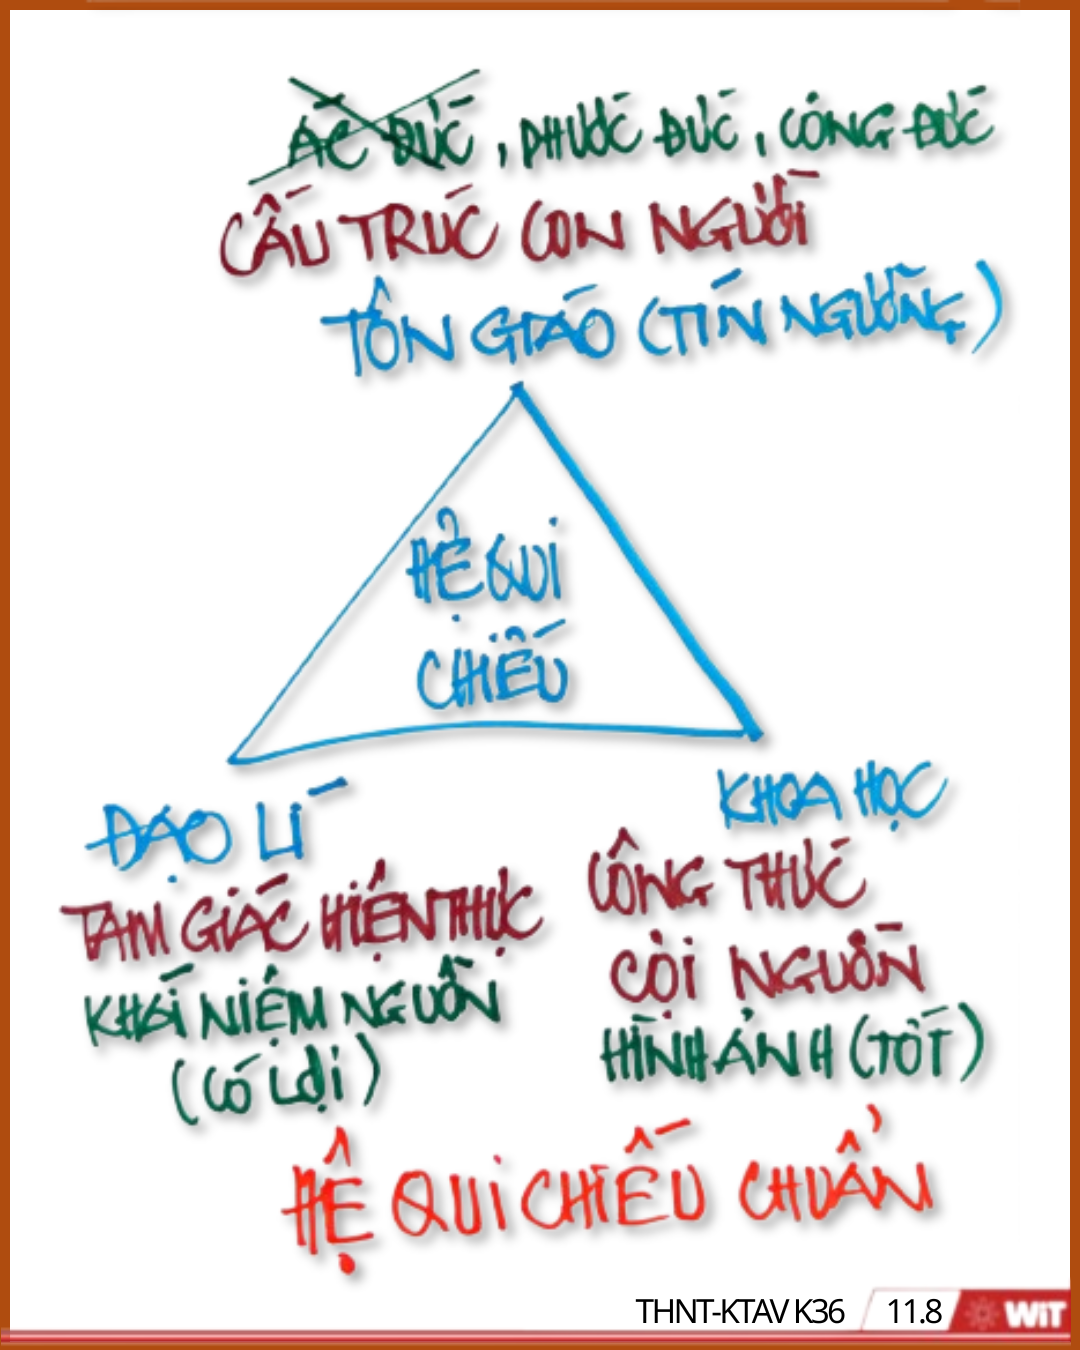 ÁC ĐỨC, PHƯỚC ĐỨC, CÔNG ĐỨC
CẤU TRÚC CON NGƯỜI
TÔN GIÁO (TÍN NGƯỠNG)
HỆ QUI
CHIẾU
ĐẠO LÍ
TAM GIÁC HIỆN THỰC
KHÁI NIỆM NGUỒN
(CÓ LỢI)
KHOA HỌC
CÔNG THỨC
CỘI NGUỒN
HÌNH ẢNH (TỐT)
HỆ QUI CHIẾU CHUẨN
THNT-KTAV K36 11.8 WiT